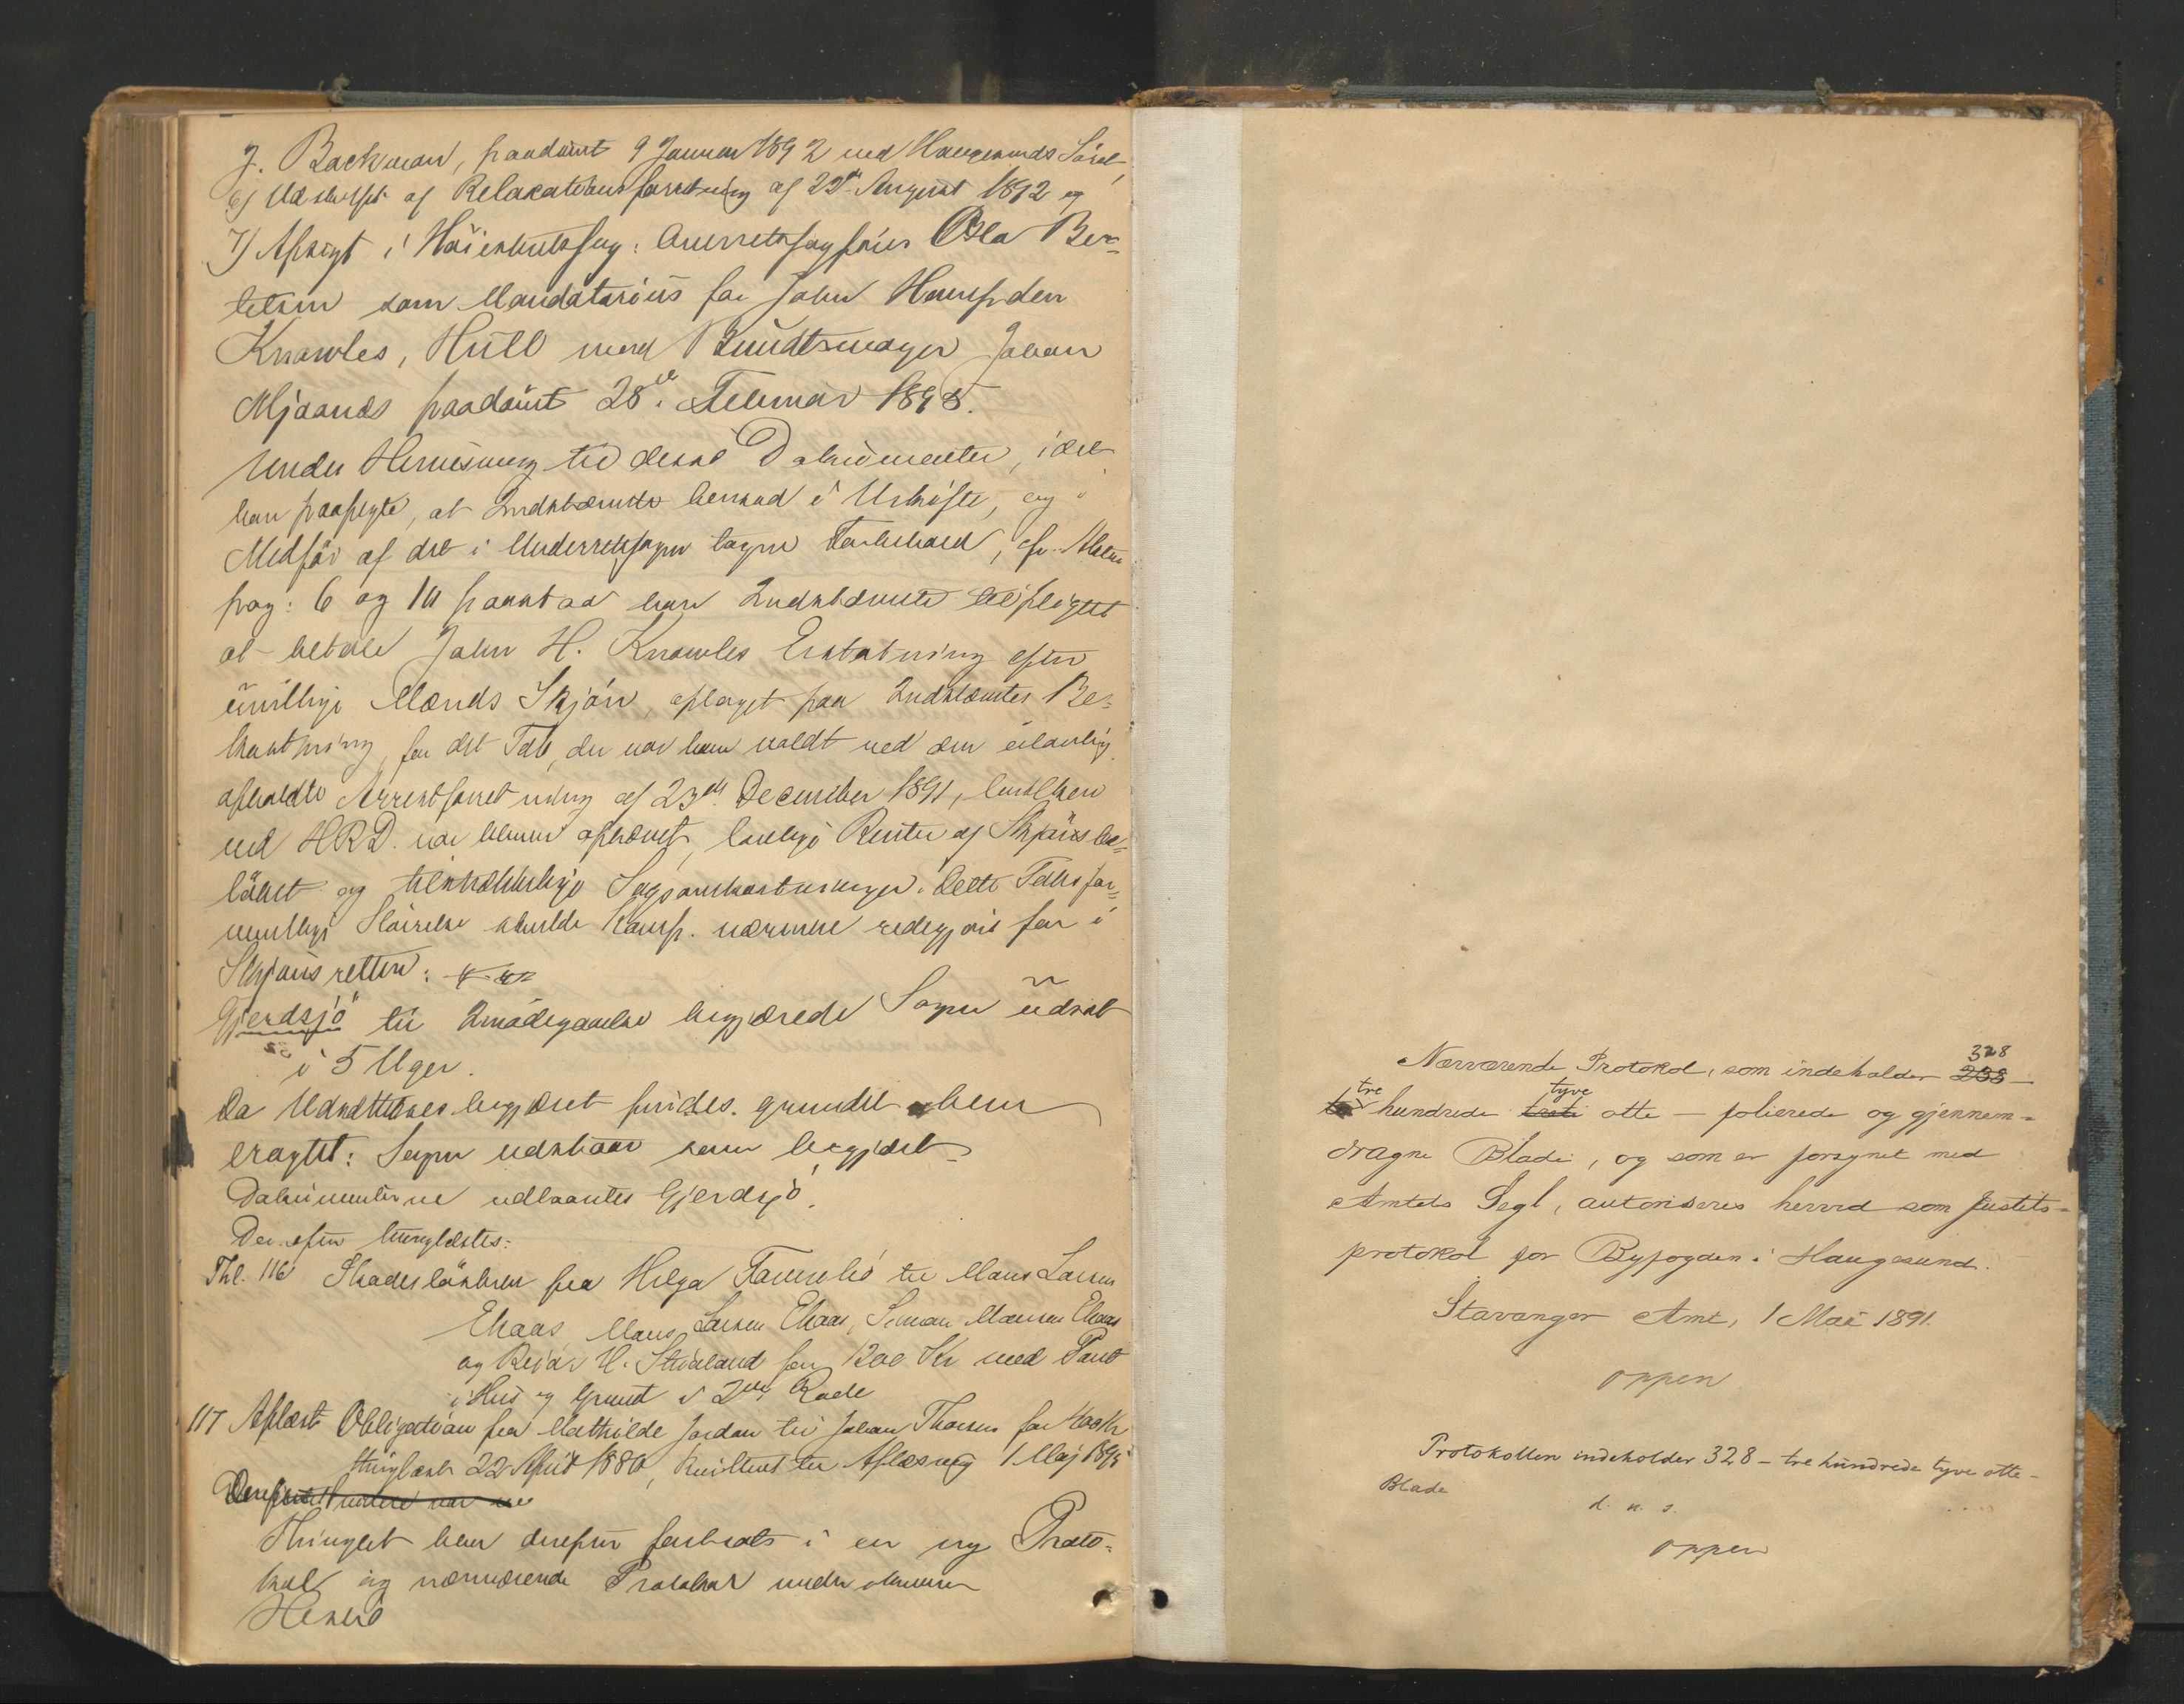 J. Backman, paadømt 9 Januar 1892 ved Haugesunds Søret,
6) Udskrift af Relaxationsforretning af 22de August 1892 og
7) Afsigt i Høiesteretssag: Overretssagfører Ole Ber-
telsen som Mandatarius for John Hampden
Knowles, Hull mod Bundtmager Johan
Mjaanes paadømt 28de Februar 1895.
Under Henvisning til disse Dokumenter, idet
han paapegte, at Indstævnte hensad i Uskifte, og i
Medfør af det i Underretssagen tagne Forbehold, cfr. Akten
pag: 6 og 10 paastod han Indstævnte tilpligtet
at betale John H. Knowles Erstatning efter
uvillige Mænds Skjøn, optaget paa Indstævntes Be-
kostning, for det Tab, der var ham voldt ved den ulovlig
afholdte Arrestforretning af 23de December 1891, hvilken
ved HRD. var bleven ophævet, lovlige Renter af Skjønsbe-
løbet og tilstrækkelige Sagsomkostninger. Dette Tabs for-
mentlige Størrelse skulde Komp. nærmere redegjøre for i
Skjønsretten:
Gjerdsjø til Imødegaaelse begjærede Sagen udsat
i 5 Uger.
Da Udsættelsesbegjæret findes grundet blev
eragtet: Sagen udstaar som begjæret
Dokumenterne udlaantes Gjerdsjø.
Derefter thinglæstes:
Thl. 116 Skadesløsbrev fra Helga to Mans Larsen
Ekaas, Mans Larsen Ekaas, Simon Mansen Ekaas
og Reidar H. for 1200 Kr med Pant
i Hus og Grund i 2den Rode
117 Aflæst Obligation fra Mathilde Jordan til Johan Thorsen for 400 Kr
thinglæst 22 April 1880, kvitteret til Aflæsning 1 Maj 1895
Thinget blev derefter fortsat i en ny Proto-
kol og nærværende Protokol
Nærværende Protokol, som indeholder 238 328 –
to tre hundrede tyve otte – folierede og gjennem-
dragne Blade, og som er forsynet med
Amtets Segl, autoriseres herved som Justits-
protokol for Byfogden i Haugesund.
Stavanger Amt, 1 Mai 1891.
Oppen
Protokollen indeholder 328 – tre hundrede tyve otte –
Blade
d. u. s.
Oppen